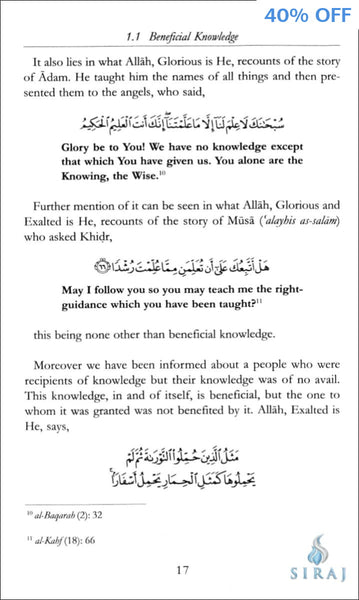 40% OFF
1.1 Beneficial Knowledge
It also lies in what Allāh, Glorious is He, recounts of the story
of Ādam. He taught him the names of all things and then pre-
sented them to the angels, who said,
سُبْحَٰنَكَ لَا عِلْمَ لَنَآ إِلَّا مَا عَلَّمْتَنَآ إِنَّكَ أَنتَ ٱلْعَلِيمُ ٱلْحَكِيمُ
Glory be to You! We have no knowledge except
that which You have given us. You alone are the
Knowing, the Wise.¹⁰
Further mention of it can be seen in what Allāh, Glorious and
Exalted is He, recounts of the story of Mūsā ('alayhis as-salām)
who asked Khiḍr,
هَلْ أَتَّبِعُكَ عَلَىٰٓ أَن تُعَلِّمَنِ مِمَّا عُلِّمْتَ رُشْدًا ﴿٦٦﴾
May I follow you so you may teach me the right-
guidance which you have been taught?¹¹
this being none other than beneficial knowledge.
Moreover we have been informed about a people who were
recipients of knowledge but their knowledge was of no avail.
This knowledge, in and of itself, is beneficial, but the one to
whom it was granted was not benefited by it. Allāh, Exalted is
He, says,
مَثَلُ ٱلَّذِينَ حُمِّلُوا۟ ٱلتَّوْرَىٰةَ ثُمَّ لَمْ
يَحْمِلُوهَا كَمَثَلِ ٱلْحِمَارِ يَحْمِلُ أَسْفَارًۢا
¹⁰ al-Baqarah (2): 32
¹¹ al-Kahf (18): 66
17
SIRAJ